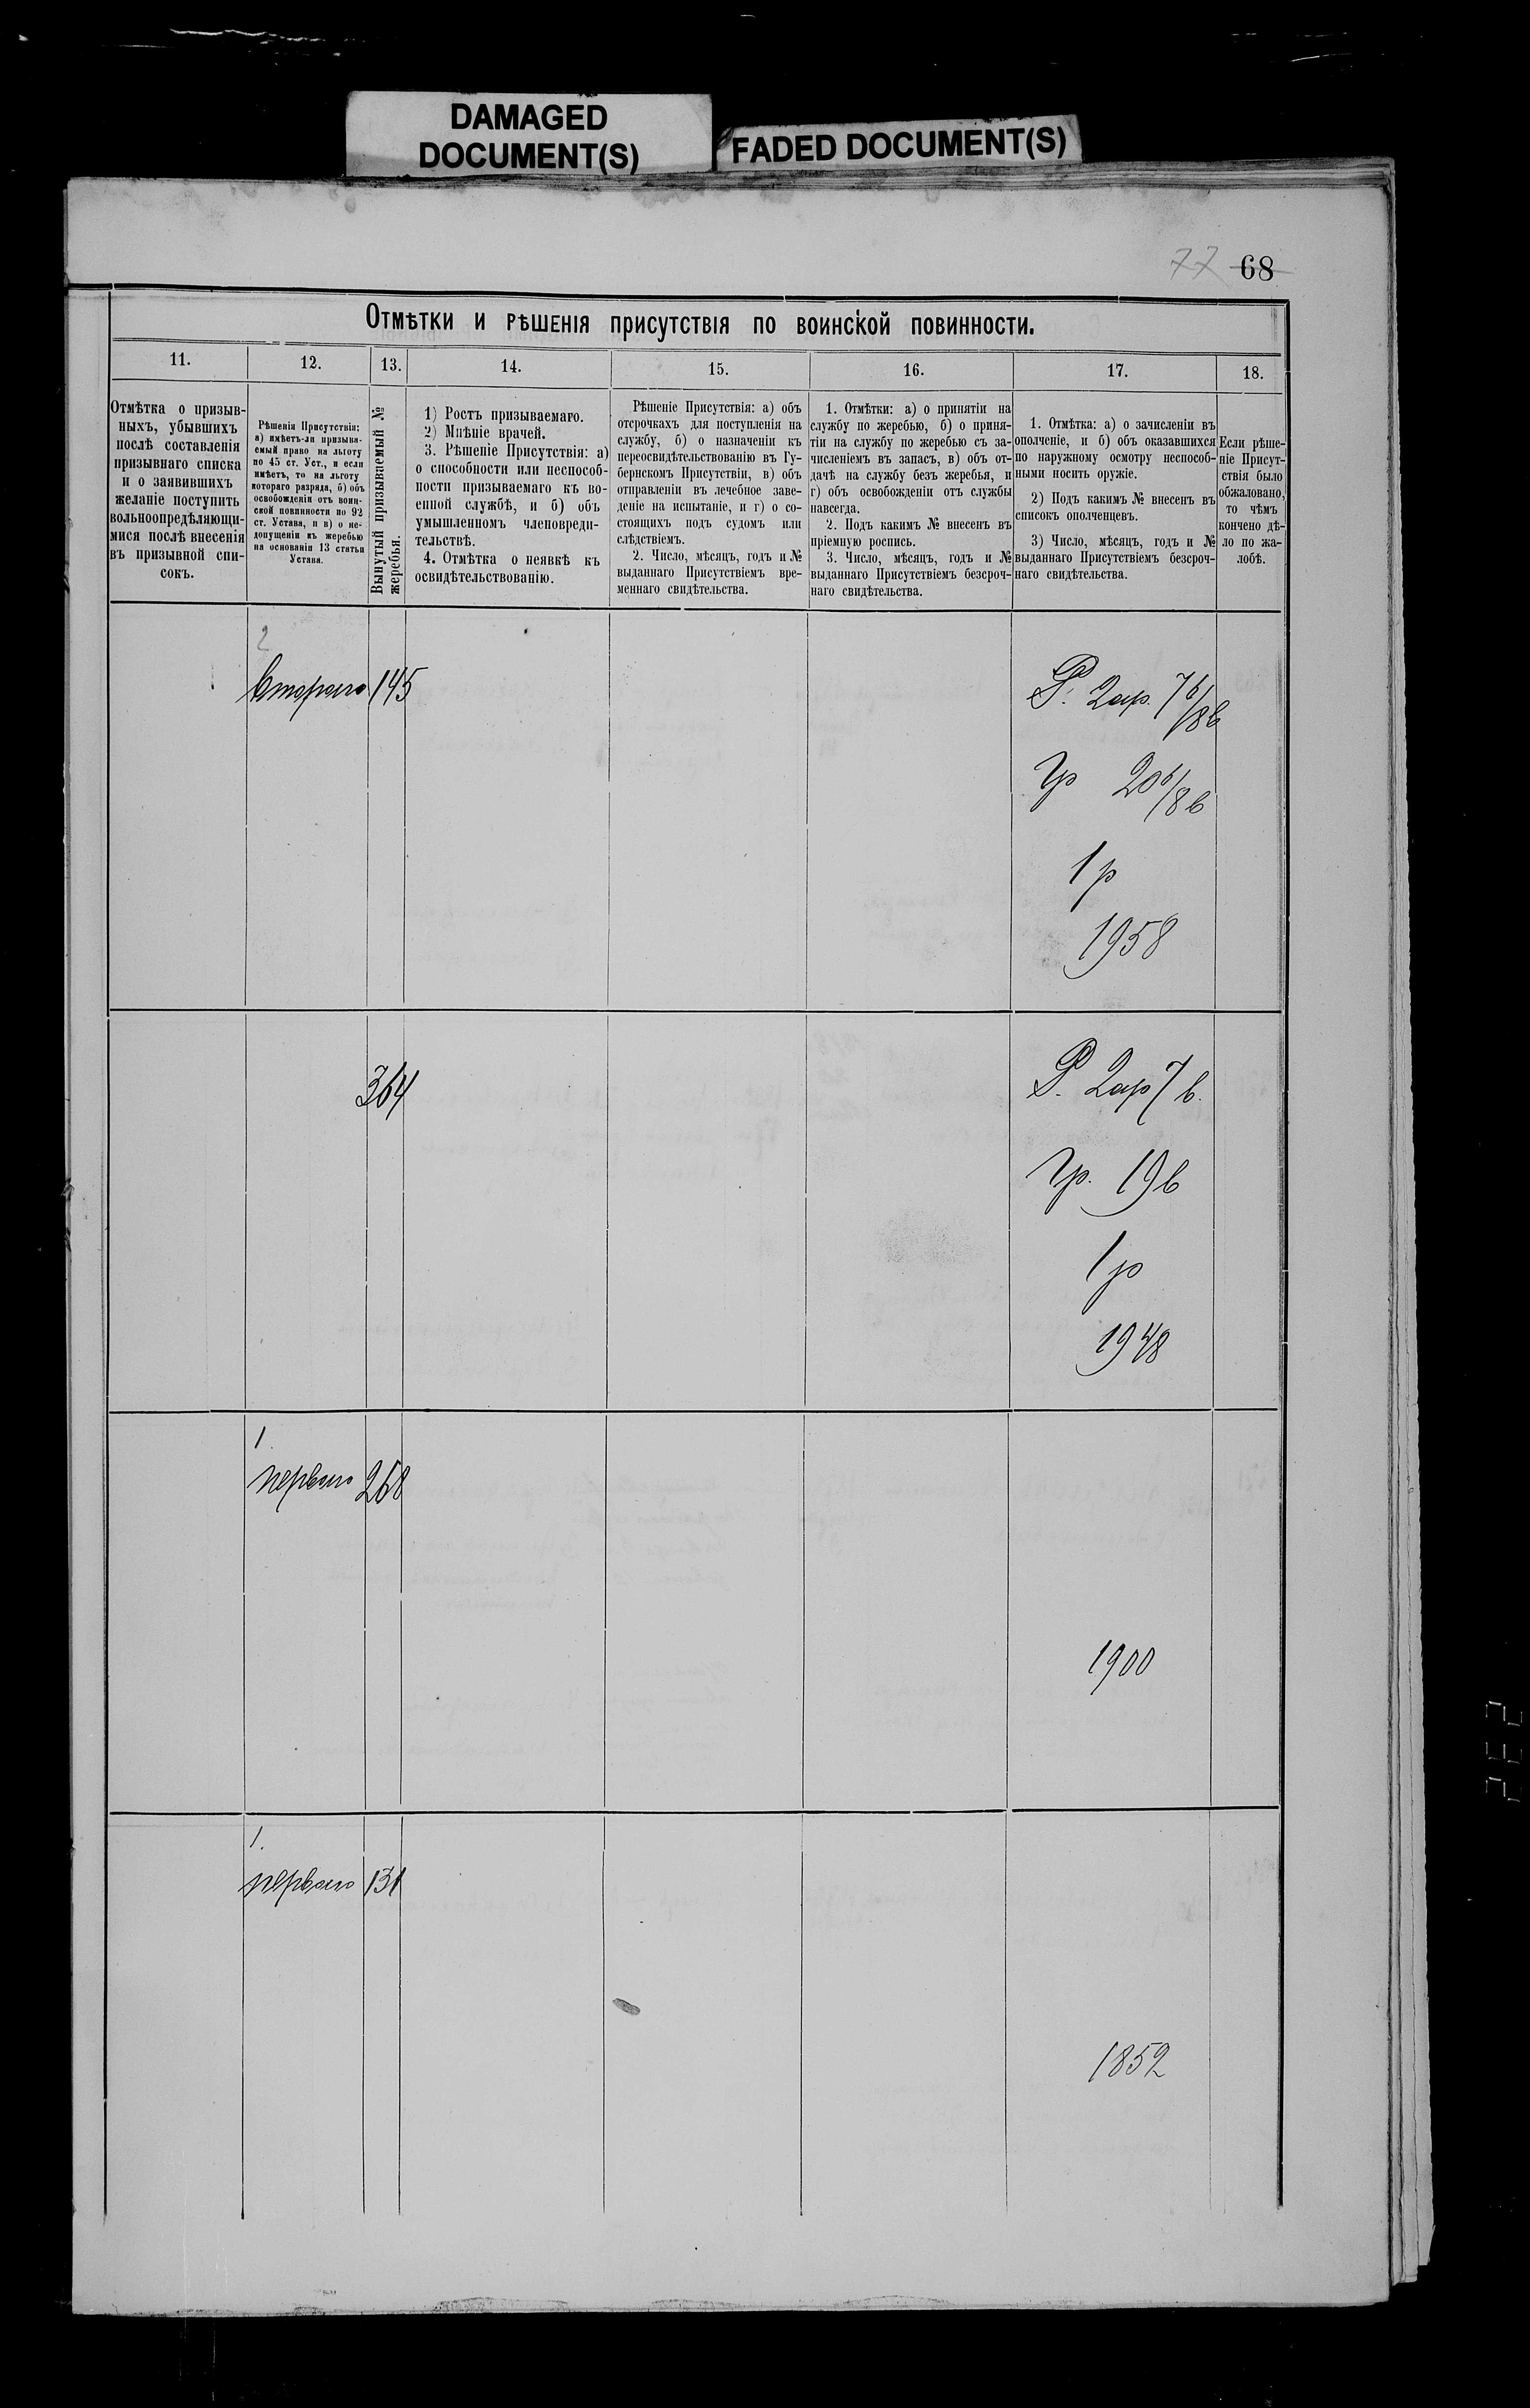 DAMAGED
DOCUMENT(S)
FADED DOCUMENT(S)
77 68
Отмѣтки и рѣшенія присутствія по воинской повинности.
11.
12.
13.
14.
15.
16.
17.
18.
Отмѣтка о призыв-
ныхъ, убывшихъ
послѣ составленія
призывнаго списка
и о заявившихъ
желаніе поступить
вольноопредѣляющи-
мися послѣ внесенія
въ призывной спи-
сокъ.
Рѣшенія Присутствія:
а) имѣетъ-ли призыва-
емый право на льготу
по 45 ст. Уст., и если
имѣетъ, то на льготу
котораго разряда, б) объ
освобожденіи отъ воин-
ской повинности по 92
ст. Устава, и в) о не-
допущеніи къ жеребью
на основаніи 13 статьи
Устава.
Вынутый призываемый №
жеребья.
1) Ростъ призываемаго.
2) Мнѣніе врачей.
3. Рѣшеніе Присутствія: а)
о способности или неспособ-
ности призываемаго къ во-
енной службѣ, и б) объ
умышленномъ членовреди-
тельствѣ.
4. Отмѣтка о неявкѣ къ
освидѣтельствованію.
Рѣшеніе Присутствія: а) объ
отсрочкахъ для поступленія на
службу, б) о назначеніи къ
переосвидѣтельствованію въ Гу-
бернскомъ Присутствіи, в) объ
отправленіи въ лечебное заве-
деніе на испытаніе, и г) о со-
стоящихъ подъ судомъ или
слѣдствіемъ.
2. Число, мѣсяцъ, годъ и №
выданнаго Присутствіемъ вре-
меннаго свидѣтельства.
1. Отмѣтки: а) о принятіи на
службу по жеребью, б) о приня-
тіи на службу по жеребью съ за-
численіемъ въ запасъ, в) объ от-
дачѣ на службу безъ жеребья, и
г) объ освобожденіи отъ службы
навсегда.
2. Подъ какимъ № внесенъ въ
пріемную роспись.
3. Число, мѣсяцъ, годъ и №
выданнаго Присутствіемъ безсроч-
наго свидѣтельства.
1. Отмѣтка: а) о зачисленіи въ
ополченіе, и б) объ оказавшихся
по наружному осмотру неспособ-
ными носить оружіе.
2) Подъ какимъ № внесенъ въ
списокъ ополченцевъ.
3) Число, мѣсяцъ, годъ и №
выданнаго Присутствіемъ безсроч-
наго свидѣтельства.
Если рѣше-
ніе Присут-
ствія было
обжаловано,
то чѣмъ
кончено дѣ-
ло по жа-
лобѣ.
2
втораго 145
1р
1958
364
1р
1948
1
перваго 268
1900
1.
перваго 131
1852